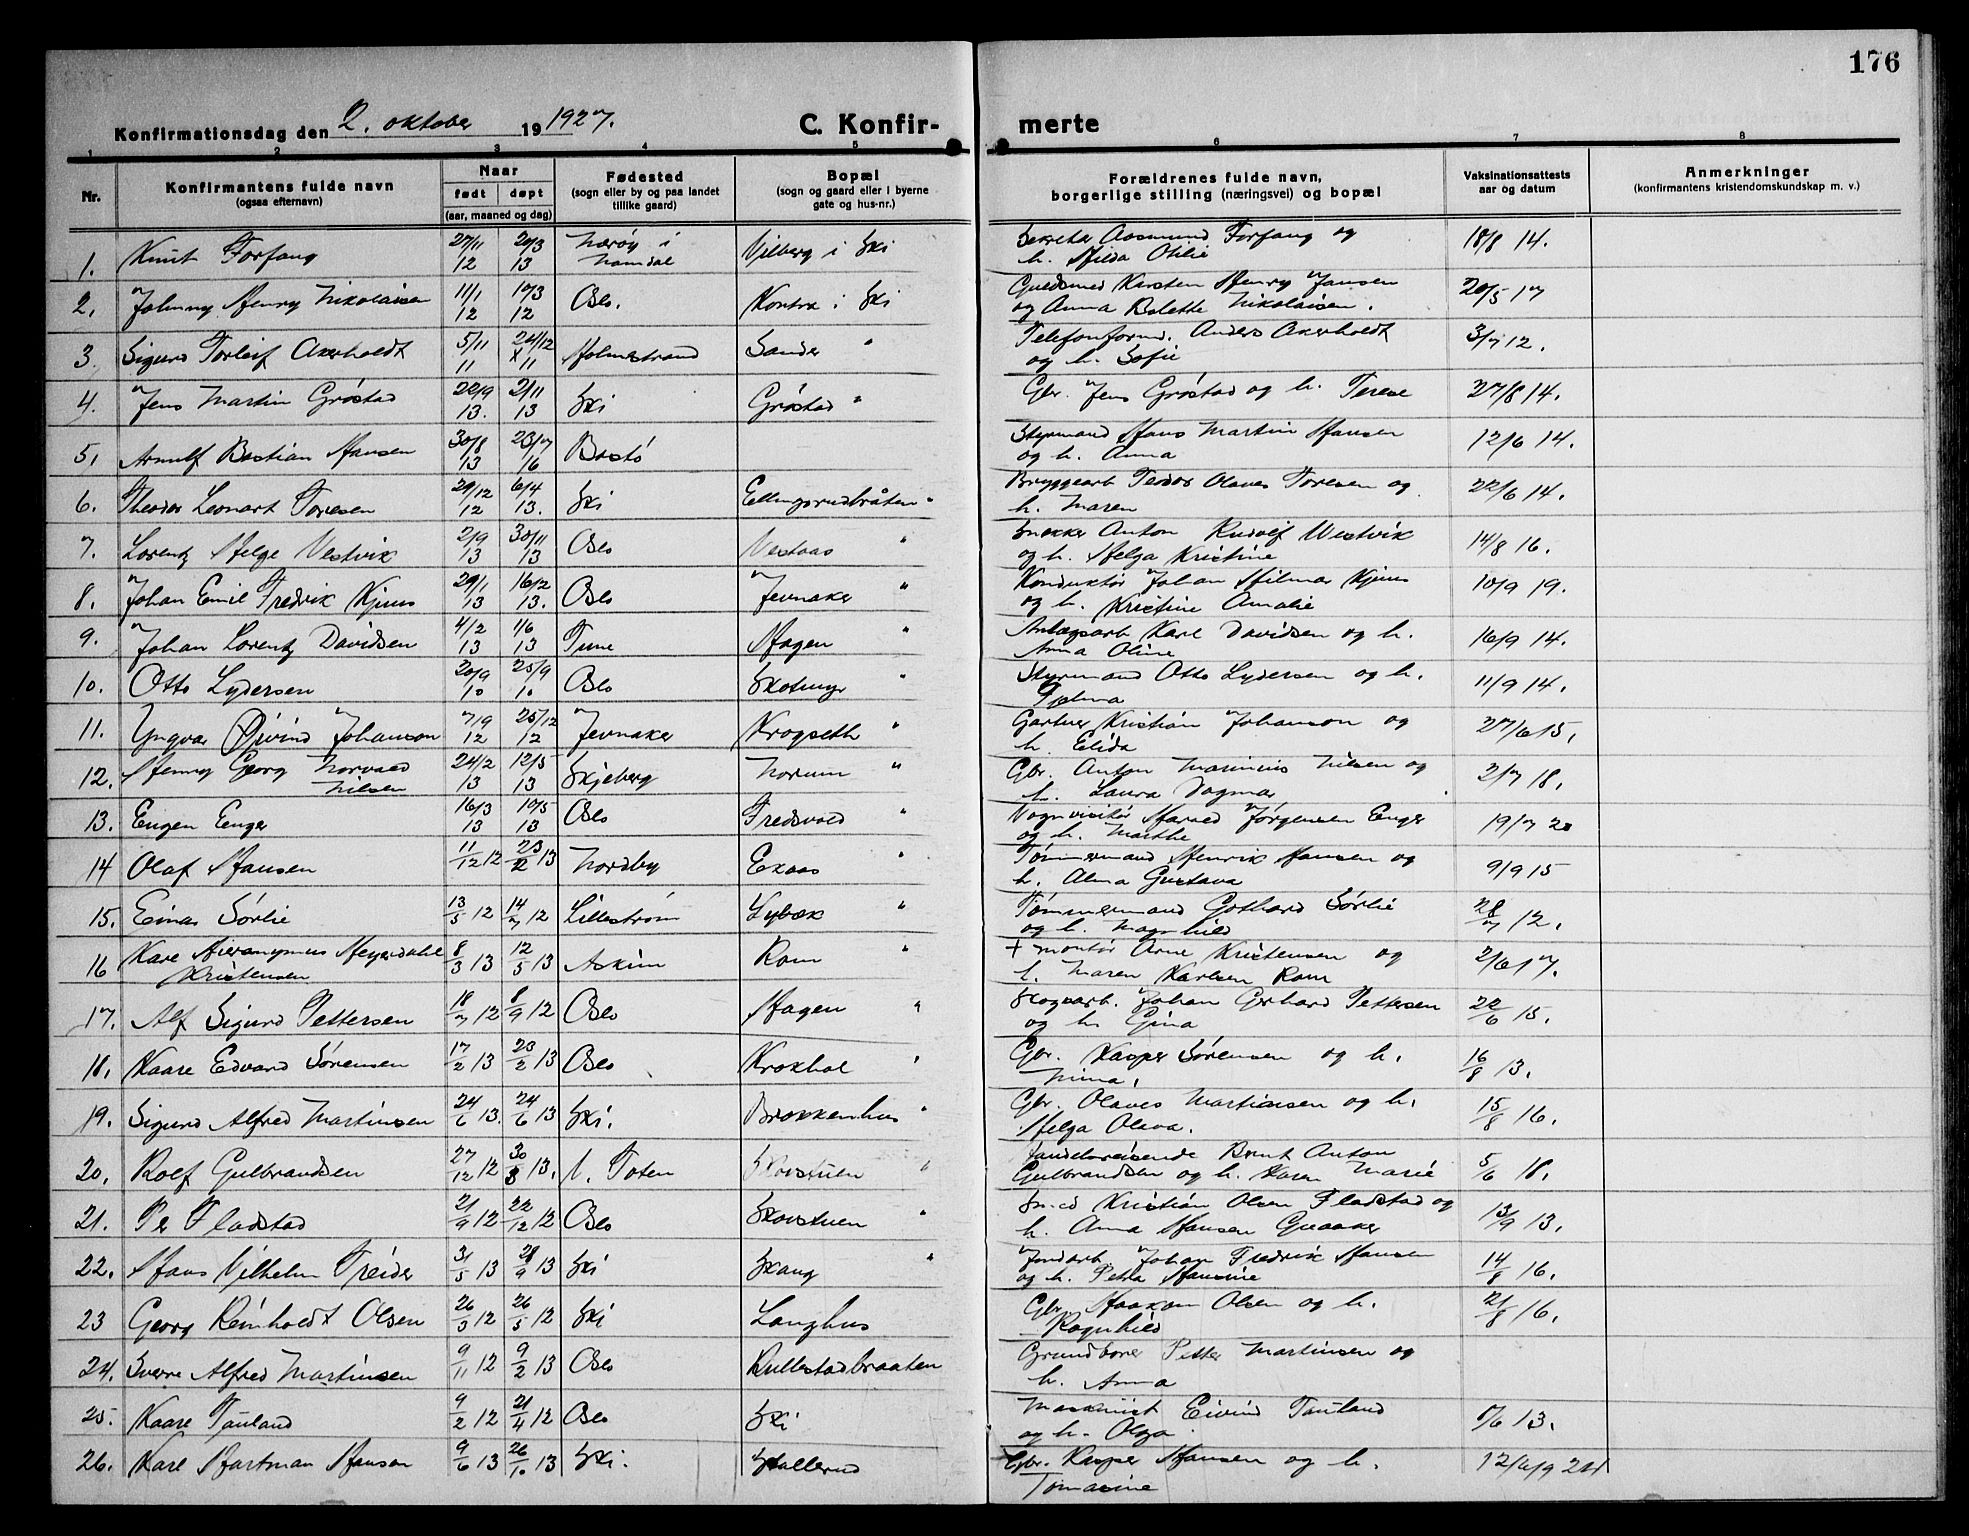 176
Konfirmationsdag den 2. oktober 19 1927. C. Konfir- merte
1 2 3 4 5 6 7 8
Nr. Konfirmantens fulde navn (ogsaa efternavn) Naar født døpt (aar, maaned og dag) Fødested (sogn eller by og paa landet tillike gaard) Bopæl (sogn og gaard eller i byerne gate og hus-nr.) Forældrenes fulde navn, borgerlige stilling (næringsvei) og bopæl Vaksinationsattests aar og datum Anmerkninger (konfirmantens kristendomskundskap m. v.)
1. Knut Forfang 27/11 12 20/3 13 Nærøy i Namdal Vilberg i Ski Sekretær Aasmund Forfang og h. Hilda Otilie 18/8 14.
2. Johnny Henry Nikolaisen 11/1 12 10/3 12 Oslo. Kontra i Ski Guldsmed Karsten Henry Jansen og Anna Bolette Nikolaisen. 20/5 17
3. Sigurd Torleif Akerholdt 5/11 11 24/12 x 11 Holmestrand Sander " Telefonformd. Anders Akerholdt og h. Sofie 3/7 12.
4. Jens Martin Grøstad 22/9 13. 2/11 13 Ski Grøstad " Gbr. Jens Grøstad og h. Terese 27/8 14.
5. Arnulf Bastian Hansen 30/8 13 23/7 16 Bastø Styrmand Hans Martin Hansen og h. Anna 12/6 14.
6. Theodor Leonart Toresen 29/12 12 6/4 13. Ski Ellingsrudbråten " Bryggearb Teodor Olaves Toresen og h. Maren 22/6 14.
7. Lorentz Helge Vestvik 2/9 13 30/11 13 Oslo Vestaas " Snekker Anton Rudolf Westvik og h. Helga Kristine 14/8 16.
8. Johan Emil Fredrik Kjuus 29/1 13 16/2 13. Oslo Jevnaker " Konduktør Johan Hilmar Kjuus og h. Kristine Amalie 10/9 19.
9. Johan Lorentz Davidsen 4/2 13 1/6 13 Tune Hagen " Anlægsarb Karl Davidsen og h. Anna Oline 16/9 14.
10. Otto Lydersen 20/9 10 25/9 10 Oslo Skotmyr " Styrmand Otto Lydersen og h. 11/9 14.
11. Yngvar Øivind Johanson 7/9 12 25/12 12 Jevnaker Krogseth " Gartner Kristian Johanson og h. Elida 27/6 15.
12. Henry Georg Norvald Nilsen 24/2 13 12/5 13 Skjeberg Norum " Gbr. Anton Marinius Nilsen og h. Laura Dagmar 2/7 18.
13. Eugen Enger 16/3 13 10/5 13 Oslo Fredsvold " Vognvisitør Harald Jørgensen Enger og h. Marthe 19/7 20
14 Olaf Hansen 11/12 12 23/2 13 Nordby Exaas " Tømmermand Henrik Hansen og h. Alma Gustava 9/9 15
15. Einar Sørlie 13/5 12 14/7 12 Lillestrøm Lybæk " Tømmermand Gothard Sørlie og h. Magnhild 28/7 12.
16 Kare Hieronymus Heyerdahl Kristensen 8/3 13 12/5 13 Askim Rom " + montør Arne Kristensen og h. Maren Karlsen Rom 2/6 17.
17. Alf Sigurd Pettersen 18/7 12 8/9 12 Oslo Hagen " Skogsarb. Johan Gerhard Pettersen og h. Gina 22/6 15.
18. Kaare Edvard Sørensen 17/2 13 23/2 13 Oslo Krokhol " Gbr. Kasper Sørensen og h. Mina, 16/8 13.
19. Sigurd Alfred Martinsen 24/6 13. 24/6 13 Ski. Brokkenhus " Gbr. Olaves Martinsen og h. Helga Olava. 15/8 16.
20. Rolf Gulbrandsen 27/12 12 30/3 13. V. Toten Skostuen " Handelsreisende Bernt Anton Gulbrandsen og h. Karen Marie 5/6 18.
21. Per Fladstad 21/9 12 22/12 12 Oslo Skostuen " Smed Kristian Olsen Fladstad og h. Anna Hansen Graaker 13/9 13.
22. Hans Vilhelm Treider 31/5 13 28/9 13 Ski Skaug " Jordarb. Johan Fredrik Hansen og h. Petra Hansine 14/8 16.
23 Georg Reinholdt Olsen 26/3 12 26/5 12 Ski Langhus Gbr. Haakon Olsen og h. Ragnhild 21/8 16.
24. Sverre Alfred Martinsen 9/11 12 9/2 13 Oslo Kullestadbraaten Grundborer Petter Martinsen og h. Anna
25. Kaare Tauland 9/2 12 21/4 12 Oslo Ski Maskinist Eivind Tauland og h. Olga. 5/6 13.
26. Karl Hartman Hansen 9/6 13 26/10 13 Ski. Skallerud Gbr. Kasper Hansen og h. Tomasine